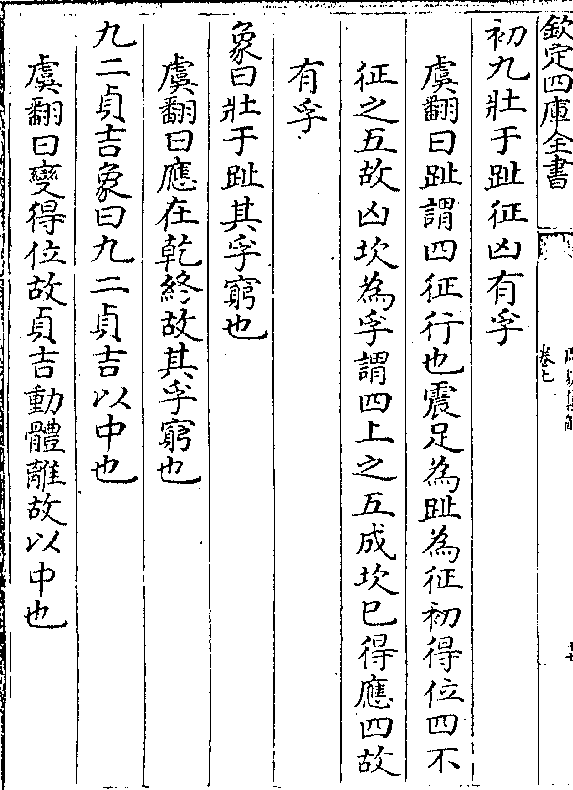 欽定四庫全書
卷七
初九壯于趾征凶有孚
虞翻曰趾謂四征行也震足為趾為征初得位四不
征之五故凶坎為孚謂四上之五成坎已得應四故
有孚
象曰壯于趾其孚窮也
虞翻曰應在乾終故其孚窮也
九二貞吉象曰九二貞吉以中也
虞翻曰變得位故貞吉動體離故以中也